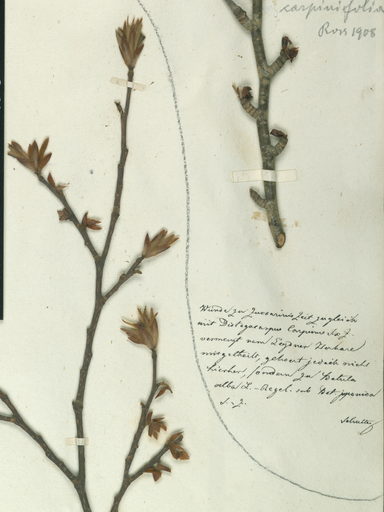 carpinifolia
Ross 1908
Wurde zu Zuccarinis Zeit zugleich
mit Distegocarpus Carpinus S. & Z.
vermengt vom Leydner Herbare
mitgetheilt, gehört jedoch nicht
hierher, sondern zu Betula
alba L. - Regel. sub Bet. japonica
S. - Z.